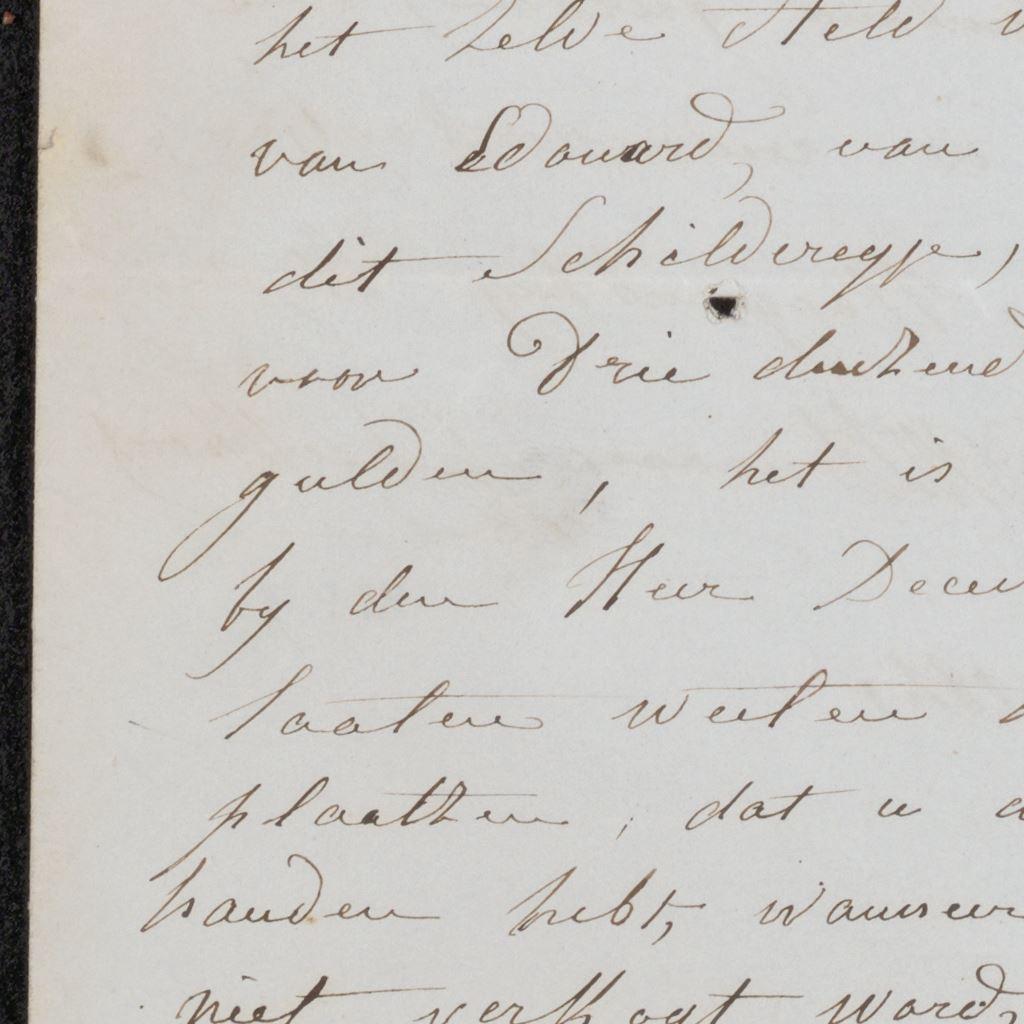 het zelve Held
van Edouard, van
dit Schildereyje,
voor Drie duitzend
gulden, het is
by den Heer
laaten weeten
plaatzen, dat u
handen hebt, wanneer
niet verkogt word,